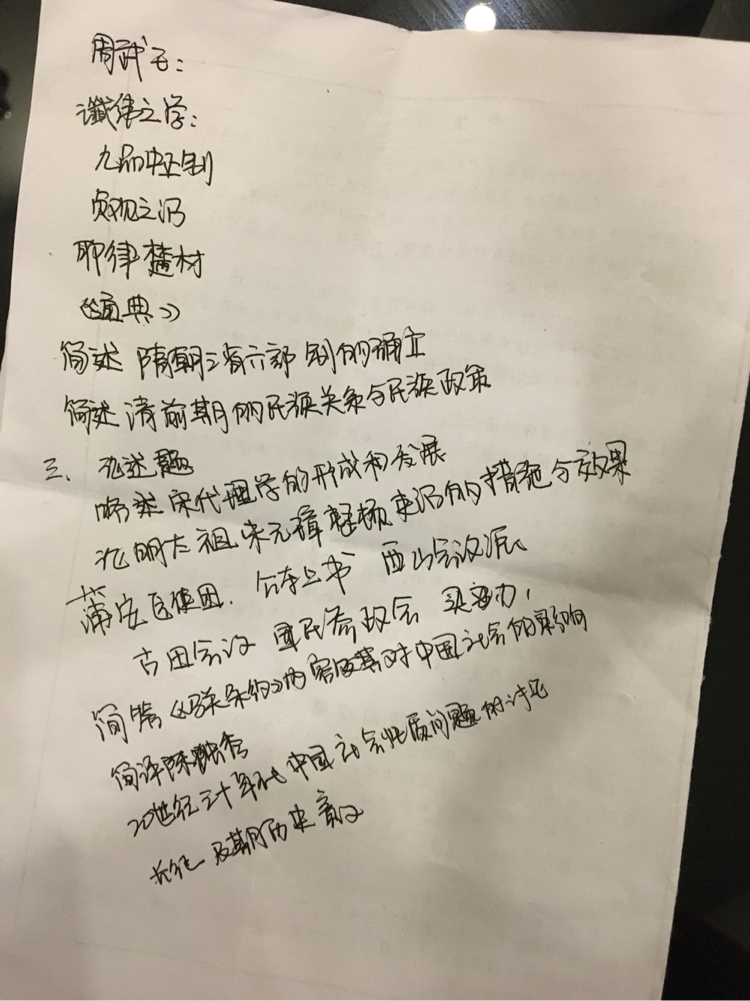 周武王：
谶纬之学：
九品中正制
贞观之治
耶律楚材
《通典》
简述 隋朝三省六部制的确立
简述 清前期的民族关系与民族政策
三、论述题
略述 宋代理学的形成和发展
论明太祖朱元璋整顿吏治的措施与效果
蒲安臣使团. 公车上书 西山会议派、
古田会议 国民参政会
简答《马关条约》内容及其对中国社会的影响
简评陈独秀
20世纪三十年代中国社会性质问题的讨论
长征及其历史意义